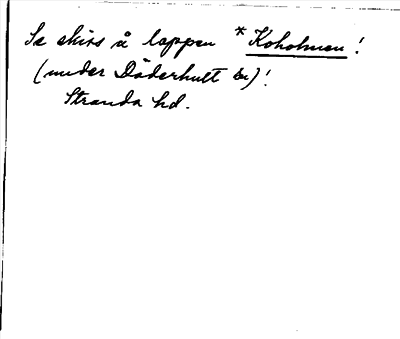 Se skiss å lappen *Koholmen!
(under Döderhult sn)!
Stranda hd.